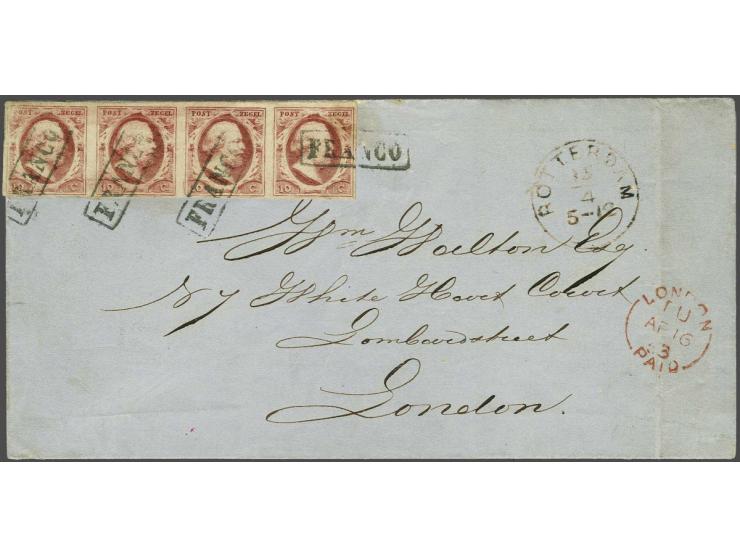 POST ZEGEL POST ZEGEL POST ZEGEL POST ZEGEL
FRANCO FRANCO FRANCO FRANCO
C. C. C. 10 C.
ROTTERDAM
15
4
5-
Wm Walton Esq.
N 7 White Hart Court
Lombardstreet
London.
LONDON
AP 16
63
PAID